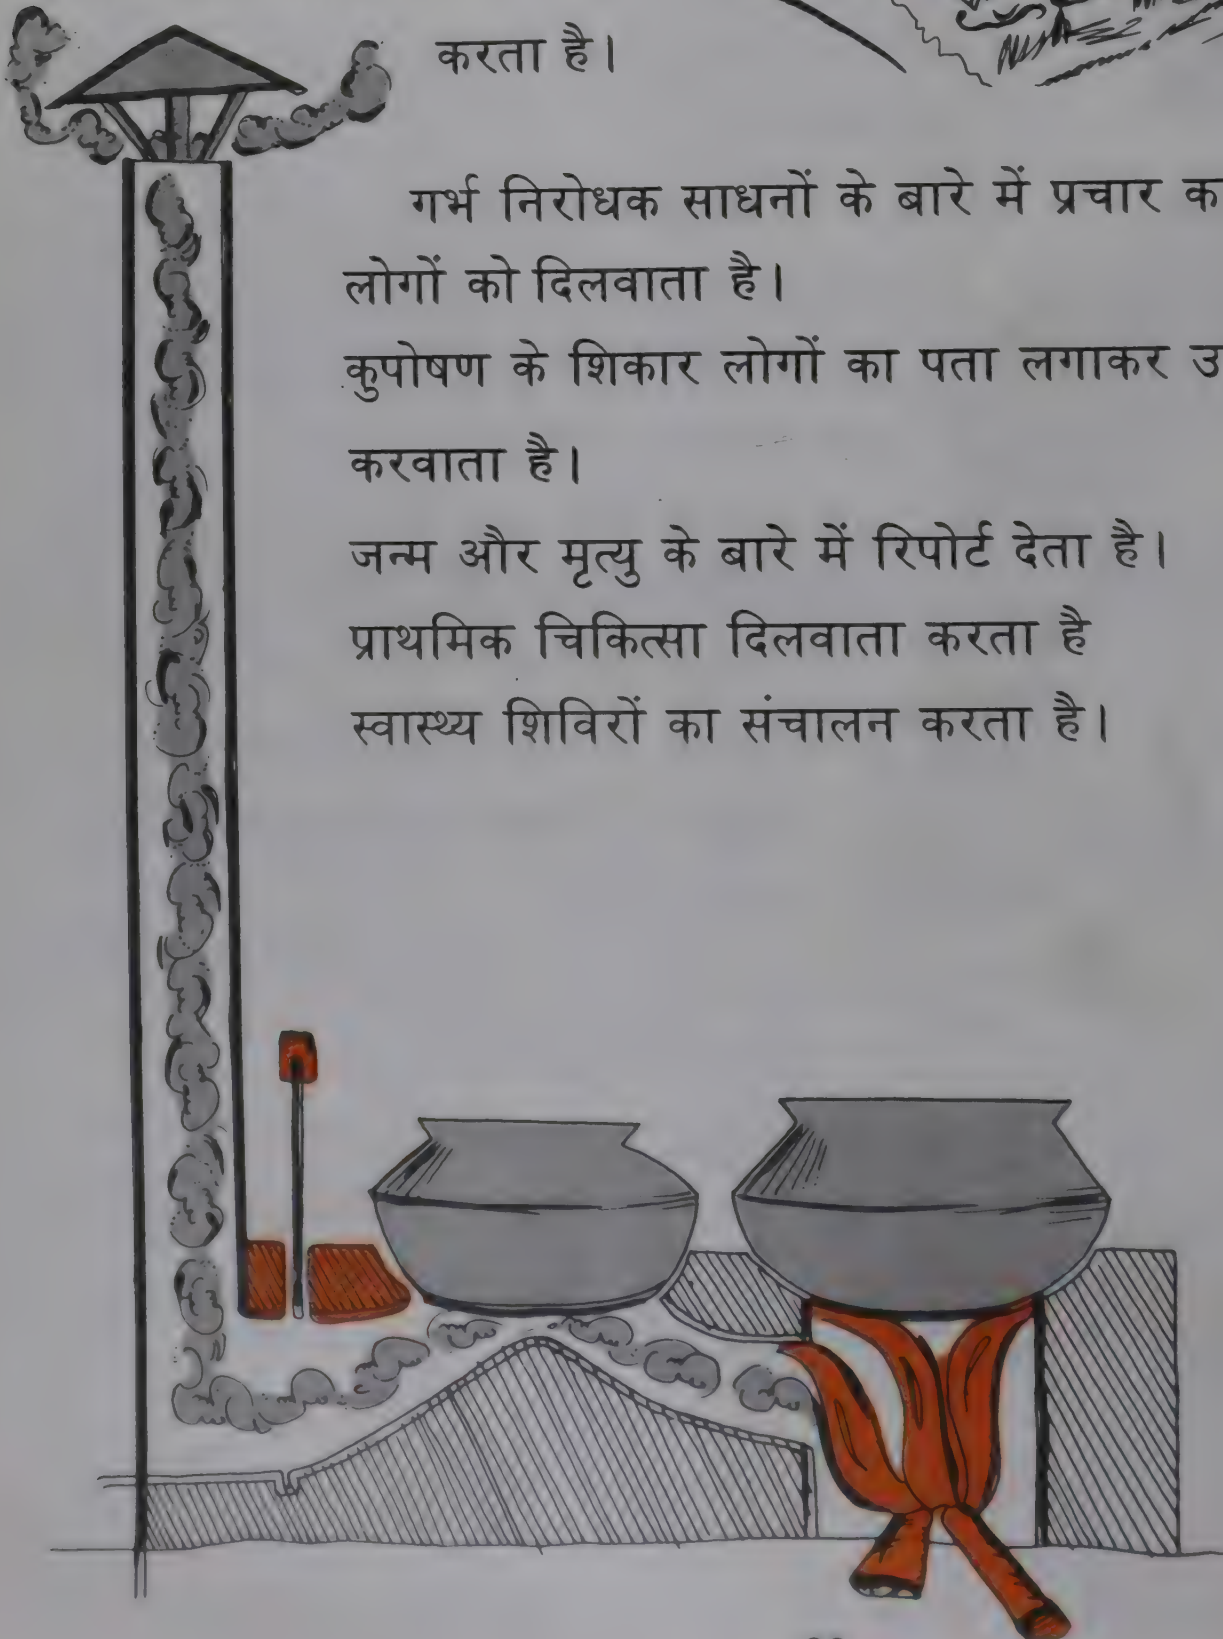 करता है।
गर्भ निरोधक साधनों के बारे में प्रचार
लोगों को दिलवाता है।
कुपोषण के शिकार लोगों का पता लगाकर
करवाता है।
जन्म और मृत्यु के बारे में रिपोर्ट देता है।
प्राथमिक चिकित्सा दिलवाता करता है
स्वास्थ्य शिविरों का संचालन करता है।